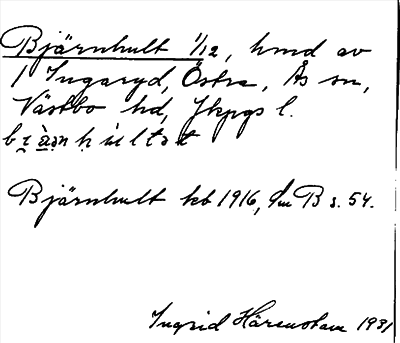 Bjärnhult 1/12, hmd av
1 Ingaryd, Östra, Ås sn,
Västbo hd, Jkpgs l.
Bjärnhult kb 1916, dm B s. 54.
Ingrid 1931